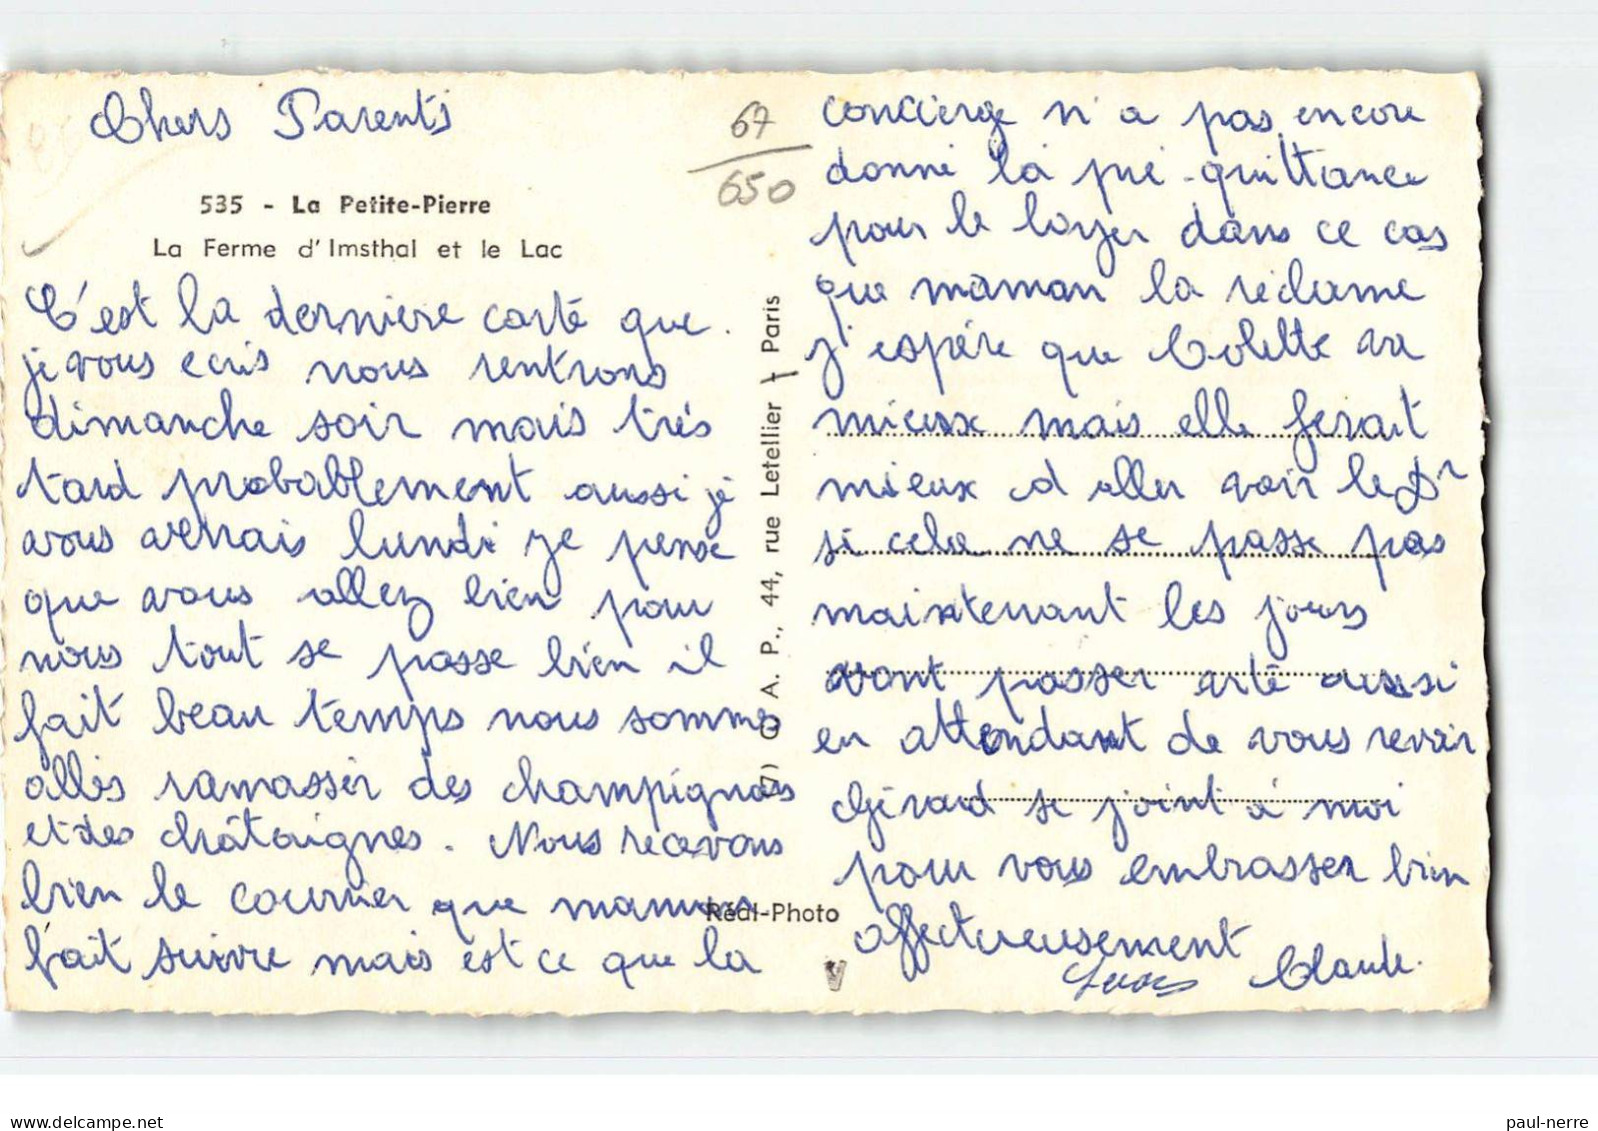 Chers Parents
67
650
535 - La Petite-Pierre
La Ferme d'Imsthal et le Lac
C'est la dernière carte que
je vous ecris nous rentrons
dimanche soir mais très
tard probablement aussi je
vous verrais lundi je pense
que vous allez bien pour
nous tout se passe bien il
fait beau temps nous sommes
allés ramasser des champignons
et des châtaignes. Nous recevons
bien le courrier que maman
fait suivre mais est ce que la
concierge n'a pas encore
donné la pré-quittance
pour le loyer dans ce cas
que maman la réclame
j'espère que Colette va
mieux mais elle ferait
mieux d aller voir le Dr
si cela ne se passe pas
maintenant les jours
vont passer vite aussi
en attendant de vous revoir
Gérard se joint à moi
pour vous embrasser bien
affectueusement
Claude.
G. A. P., 44, rue Letellier - Paris
Réal-Photo
V
delcampe.net
paul-nerre